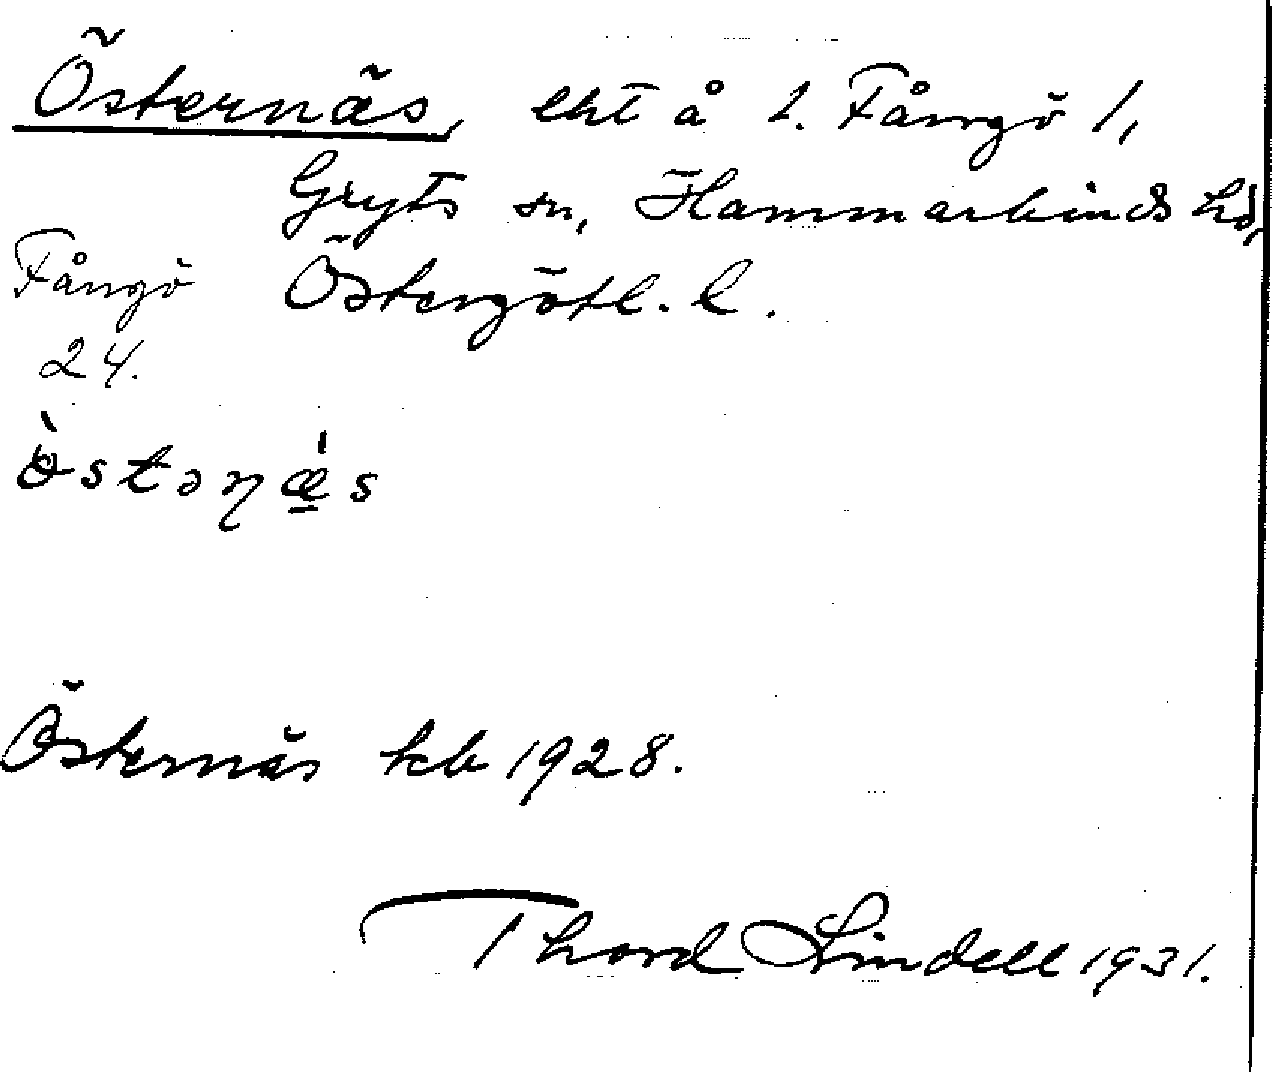 Östernäs, lht å 1. Fångö 1,
Gryts sn, Hammarkinds hd,
Östergötl. l.
Fångö
24.
ö̀stəɳǽ̠s
Östernäs kb 1928.
Thord Lindell 1931.